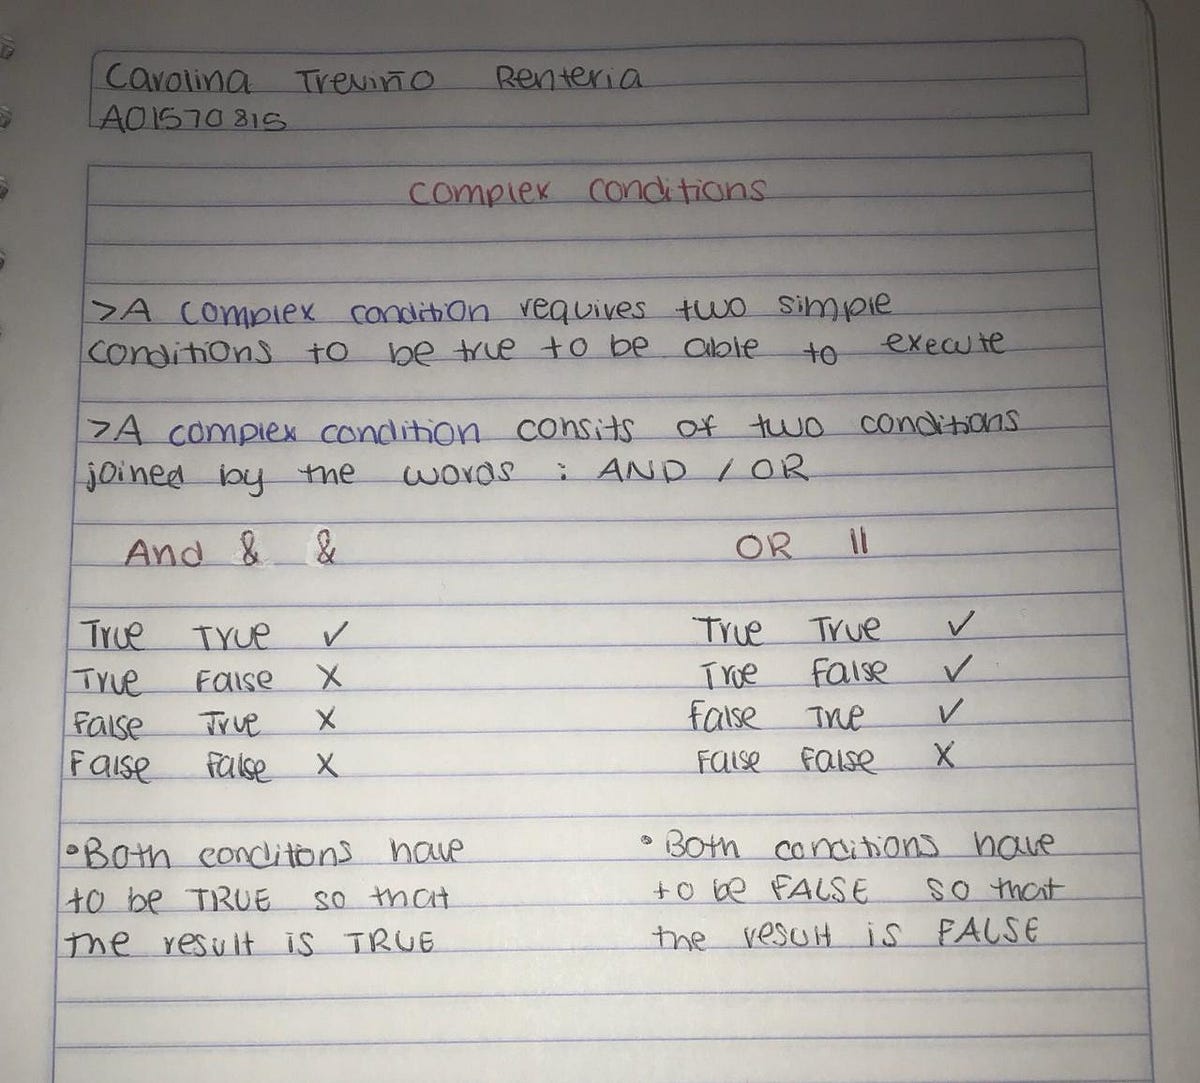 Carolina Treviño Renteria
A01570815
complex conditions
>A complex condition requires two simple
conditions to be true to be able to execute
>A complex condition consits of two conditions
joined by the words : AND / OR
And & & OR ||
True True ✓ True True ✓
True False X True False ✓
False True X False True ✓
False False X False False X
•Both conditions have
to be TRUE so that
the result is TRUE
•Both conditions have
to be FALSE so that
the result is FALSE